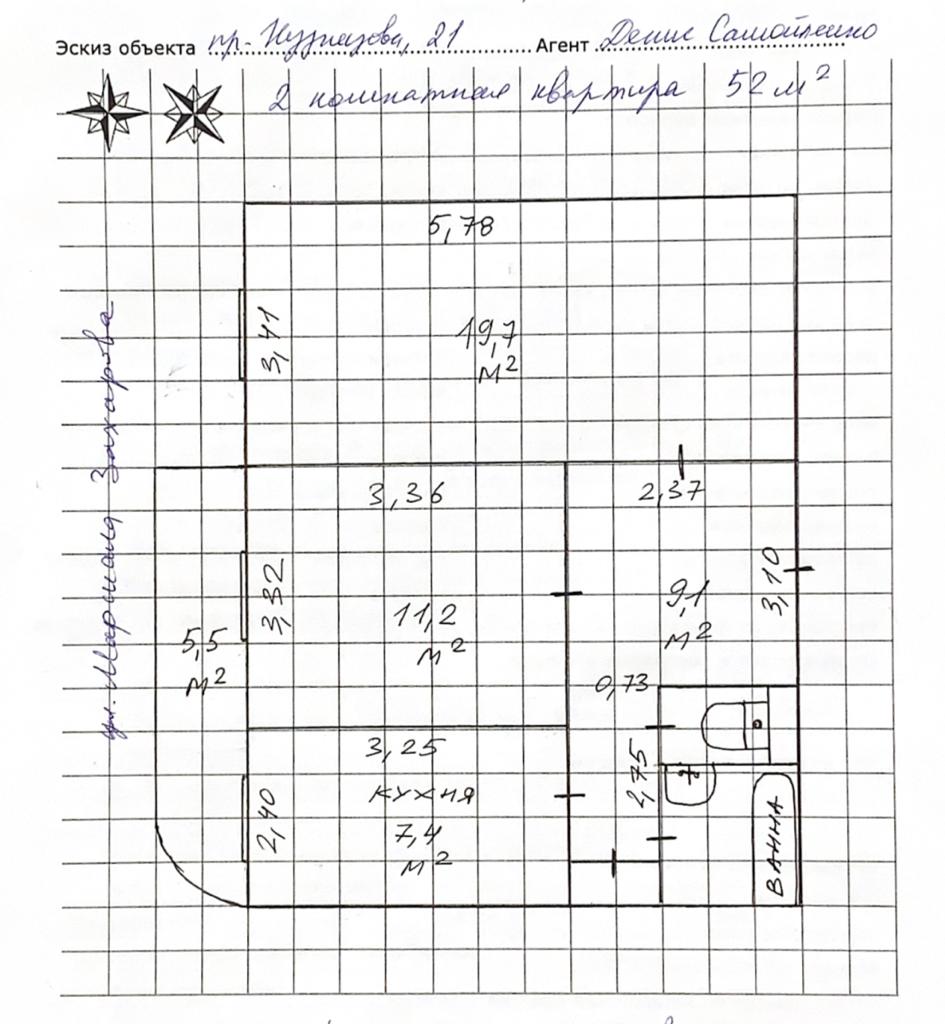 Эскиз объекта пр. Кузнецова, 21 Агент Денис Самойленко
2 комнатная квартира 52 м²
5,78
3,41
19,7
м²
ул. Маршала Захарова
3,36
2,37
3,32
3,10
11,2
м²
9,1
м²
5,5
м²
0,73
3,25
2,75
кухня
2,40
7,4
м²
ВАННА